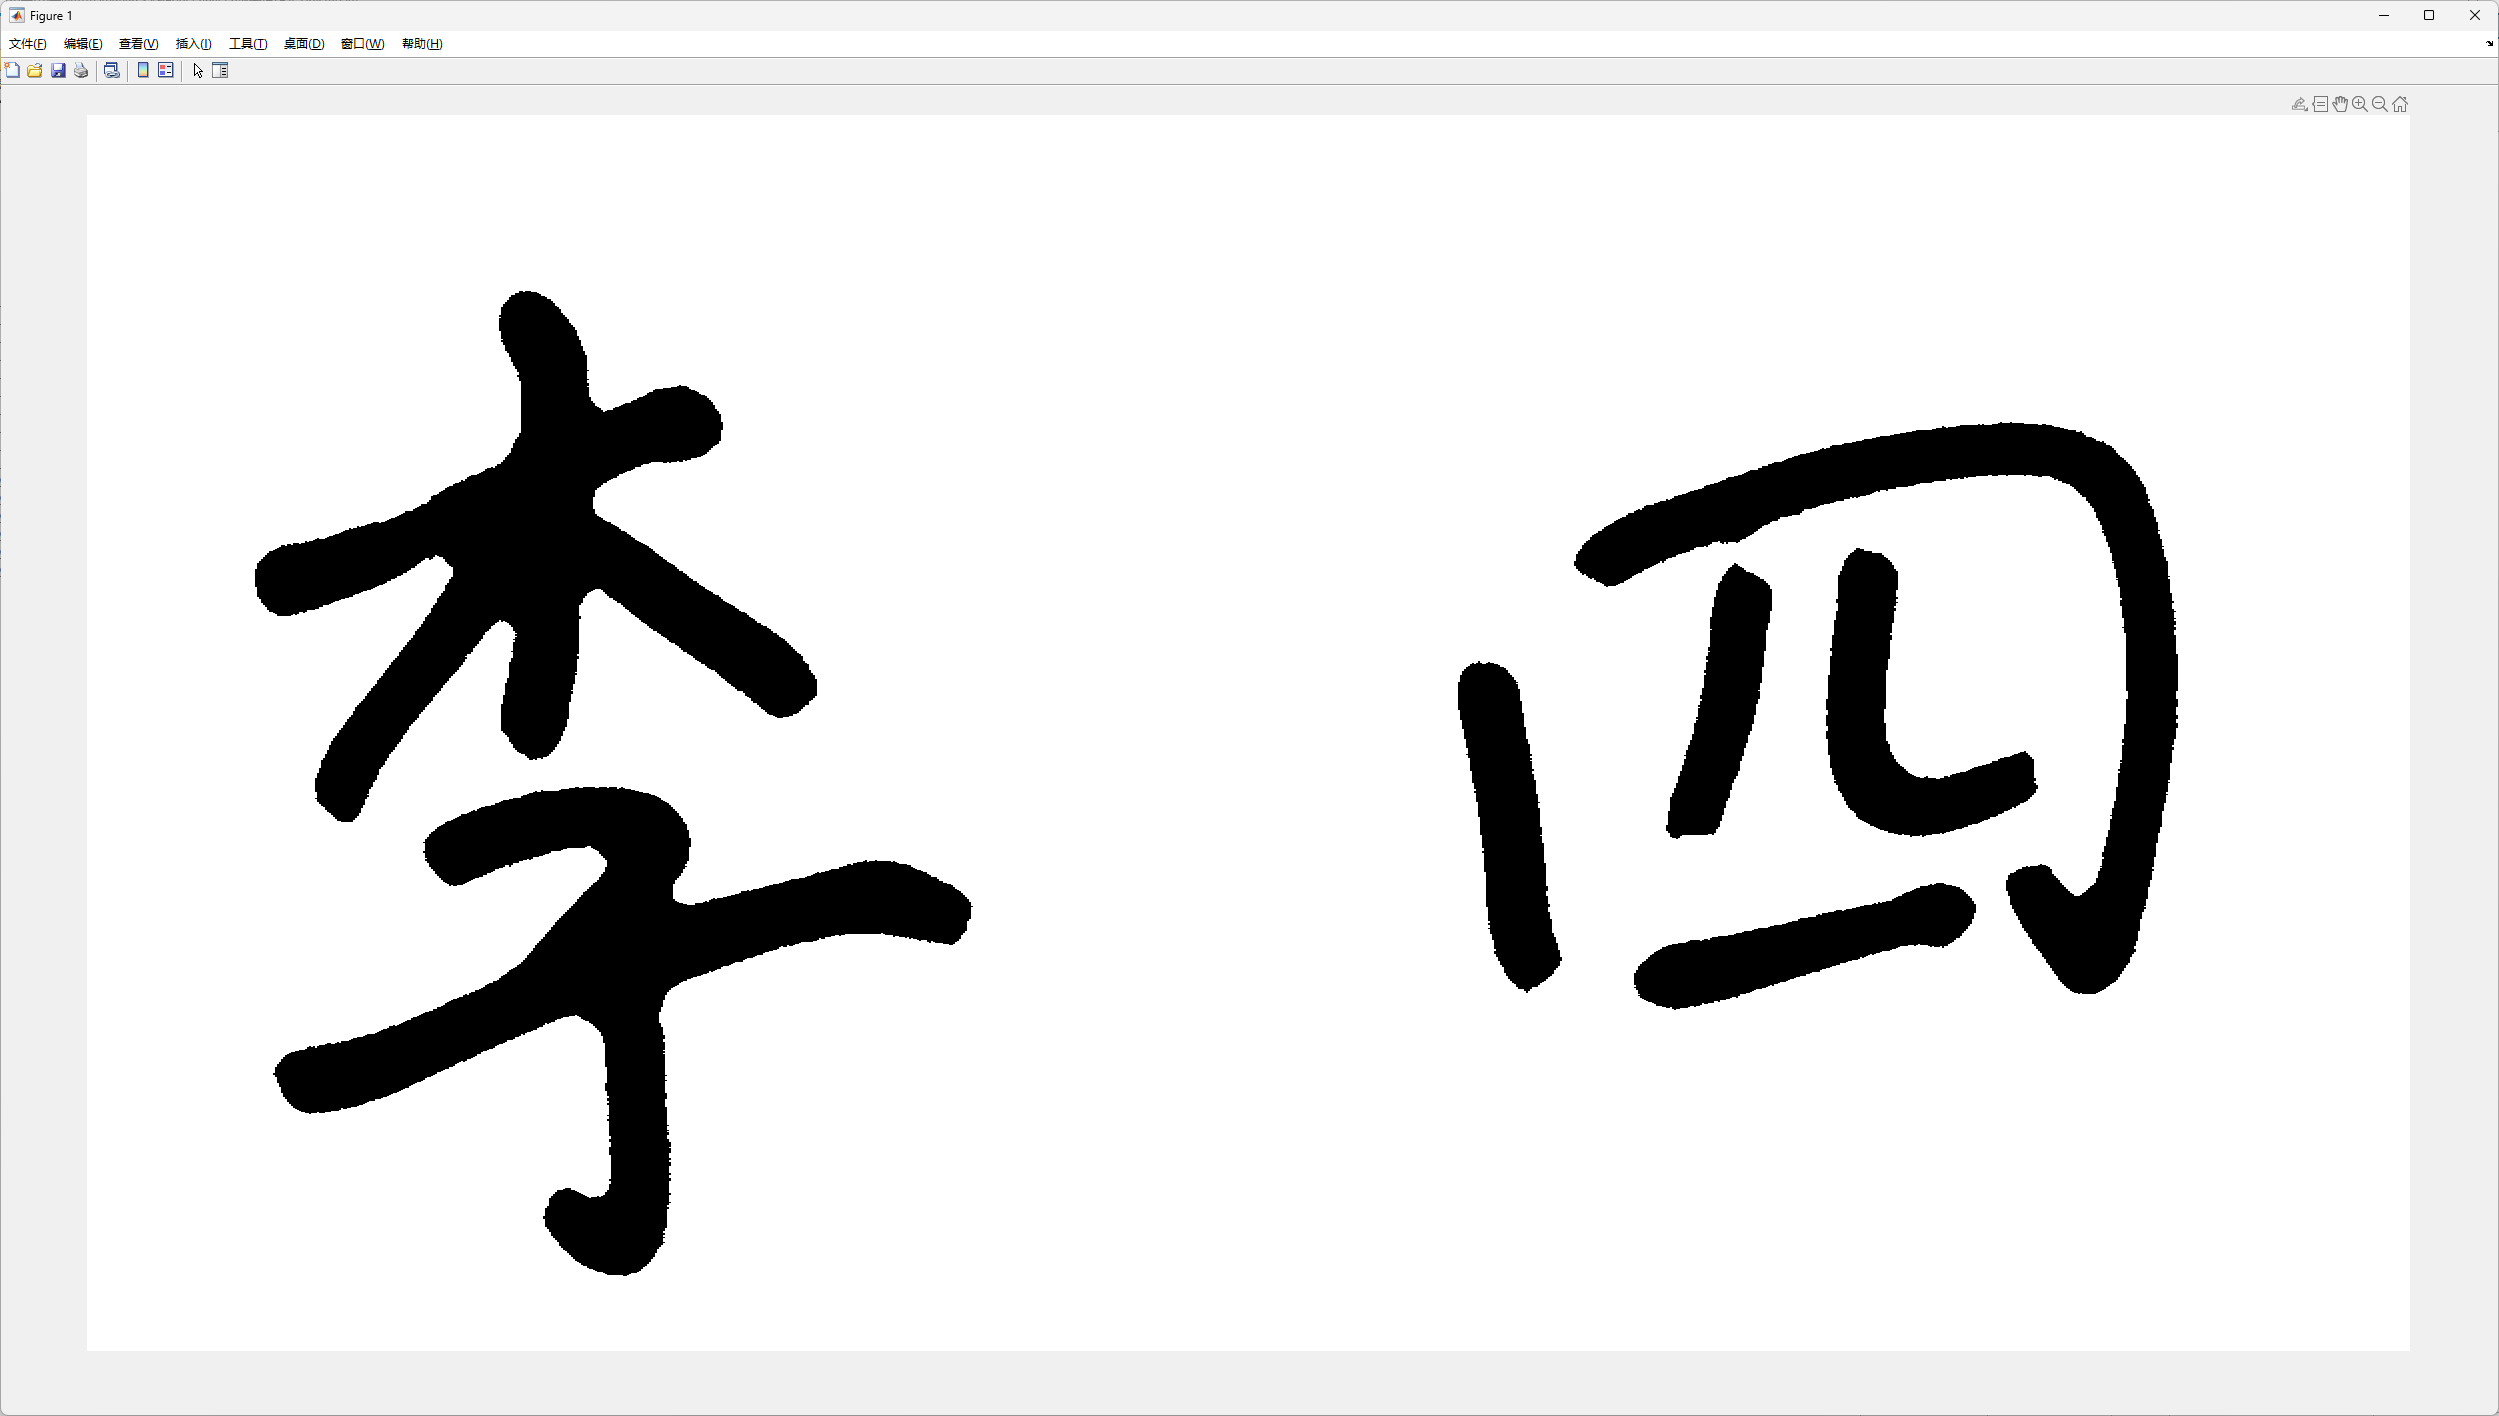 Figure 1
文件(F) 编辑(E) 查看(V) 插入(I) 工具(T) 桌面(D) 窗口(W) 帮助(H)
李四